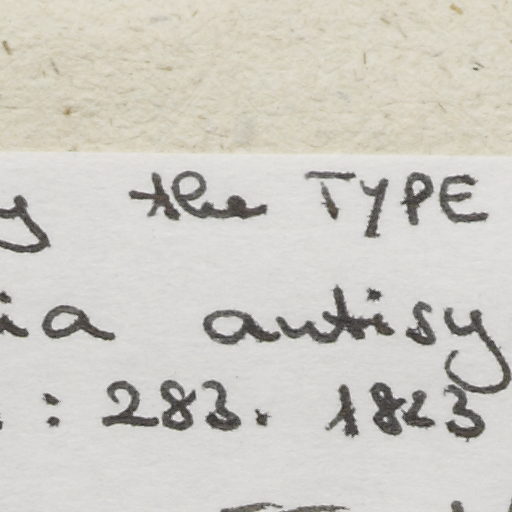 y the TYPE
ia antisy
: 283. 1823